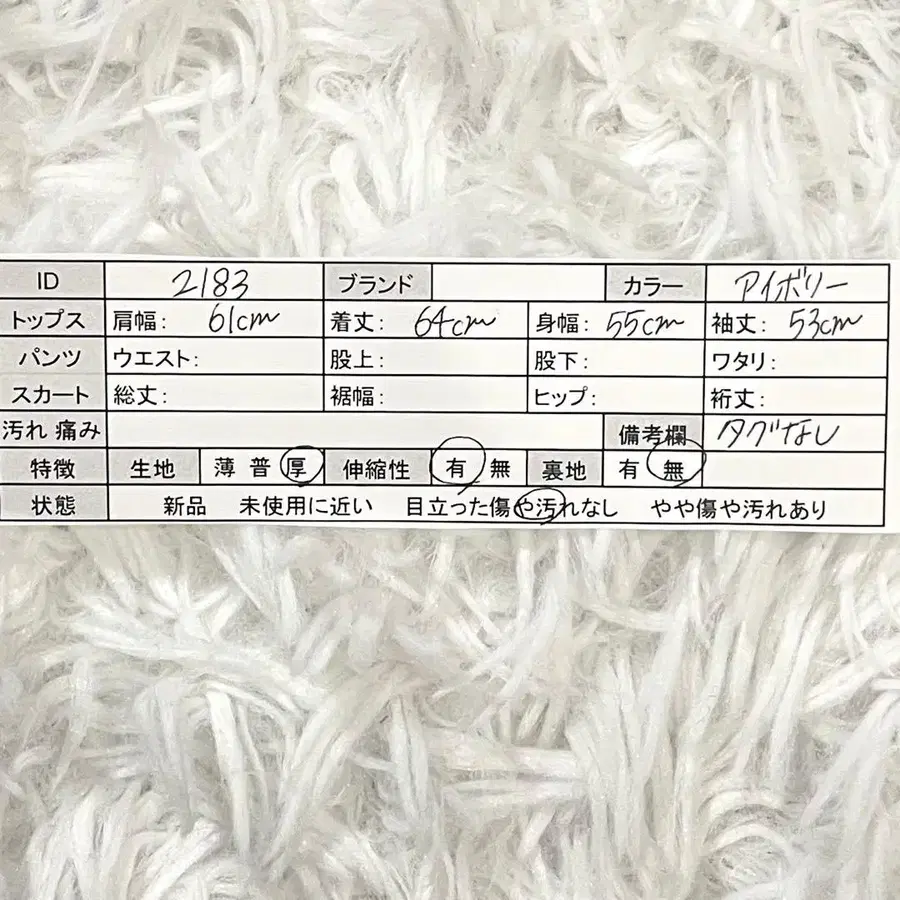 ID 2183 ブランド カラー アイボリー
トップス 肩幅: 61cm 着丈: 64cm 身幅: 55cm 袖丈: 53cm
パンツ ウエスト: 股上: 股下: ワタリ:
スカート 総丈: 裾幅: ヒップ: 裄丈:
汚れ 痛み 備考欄 タグなし
特徴 生地 薄 普 厚 伸縮性 有 無 裏地 有 無
状態 新品 未使用に近い 目立った傷や汚れなし やや傷や汚れあり